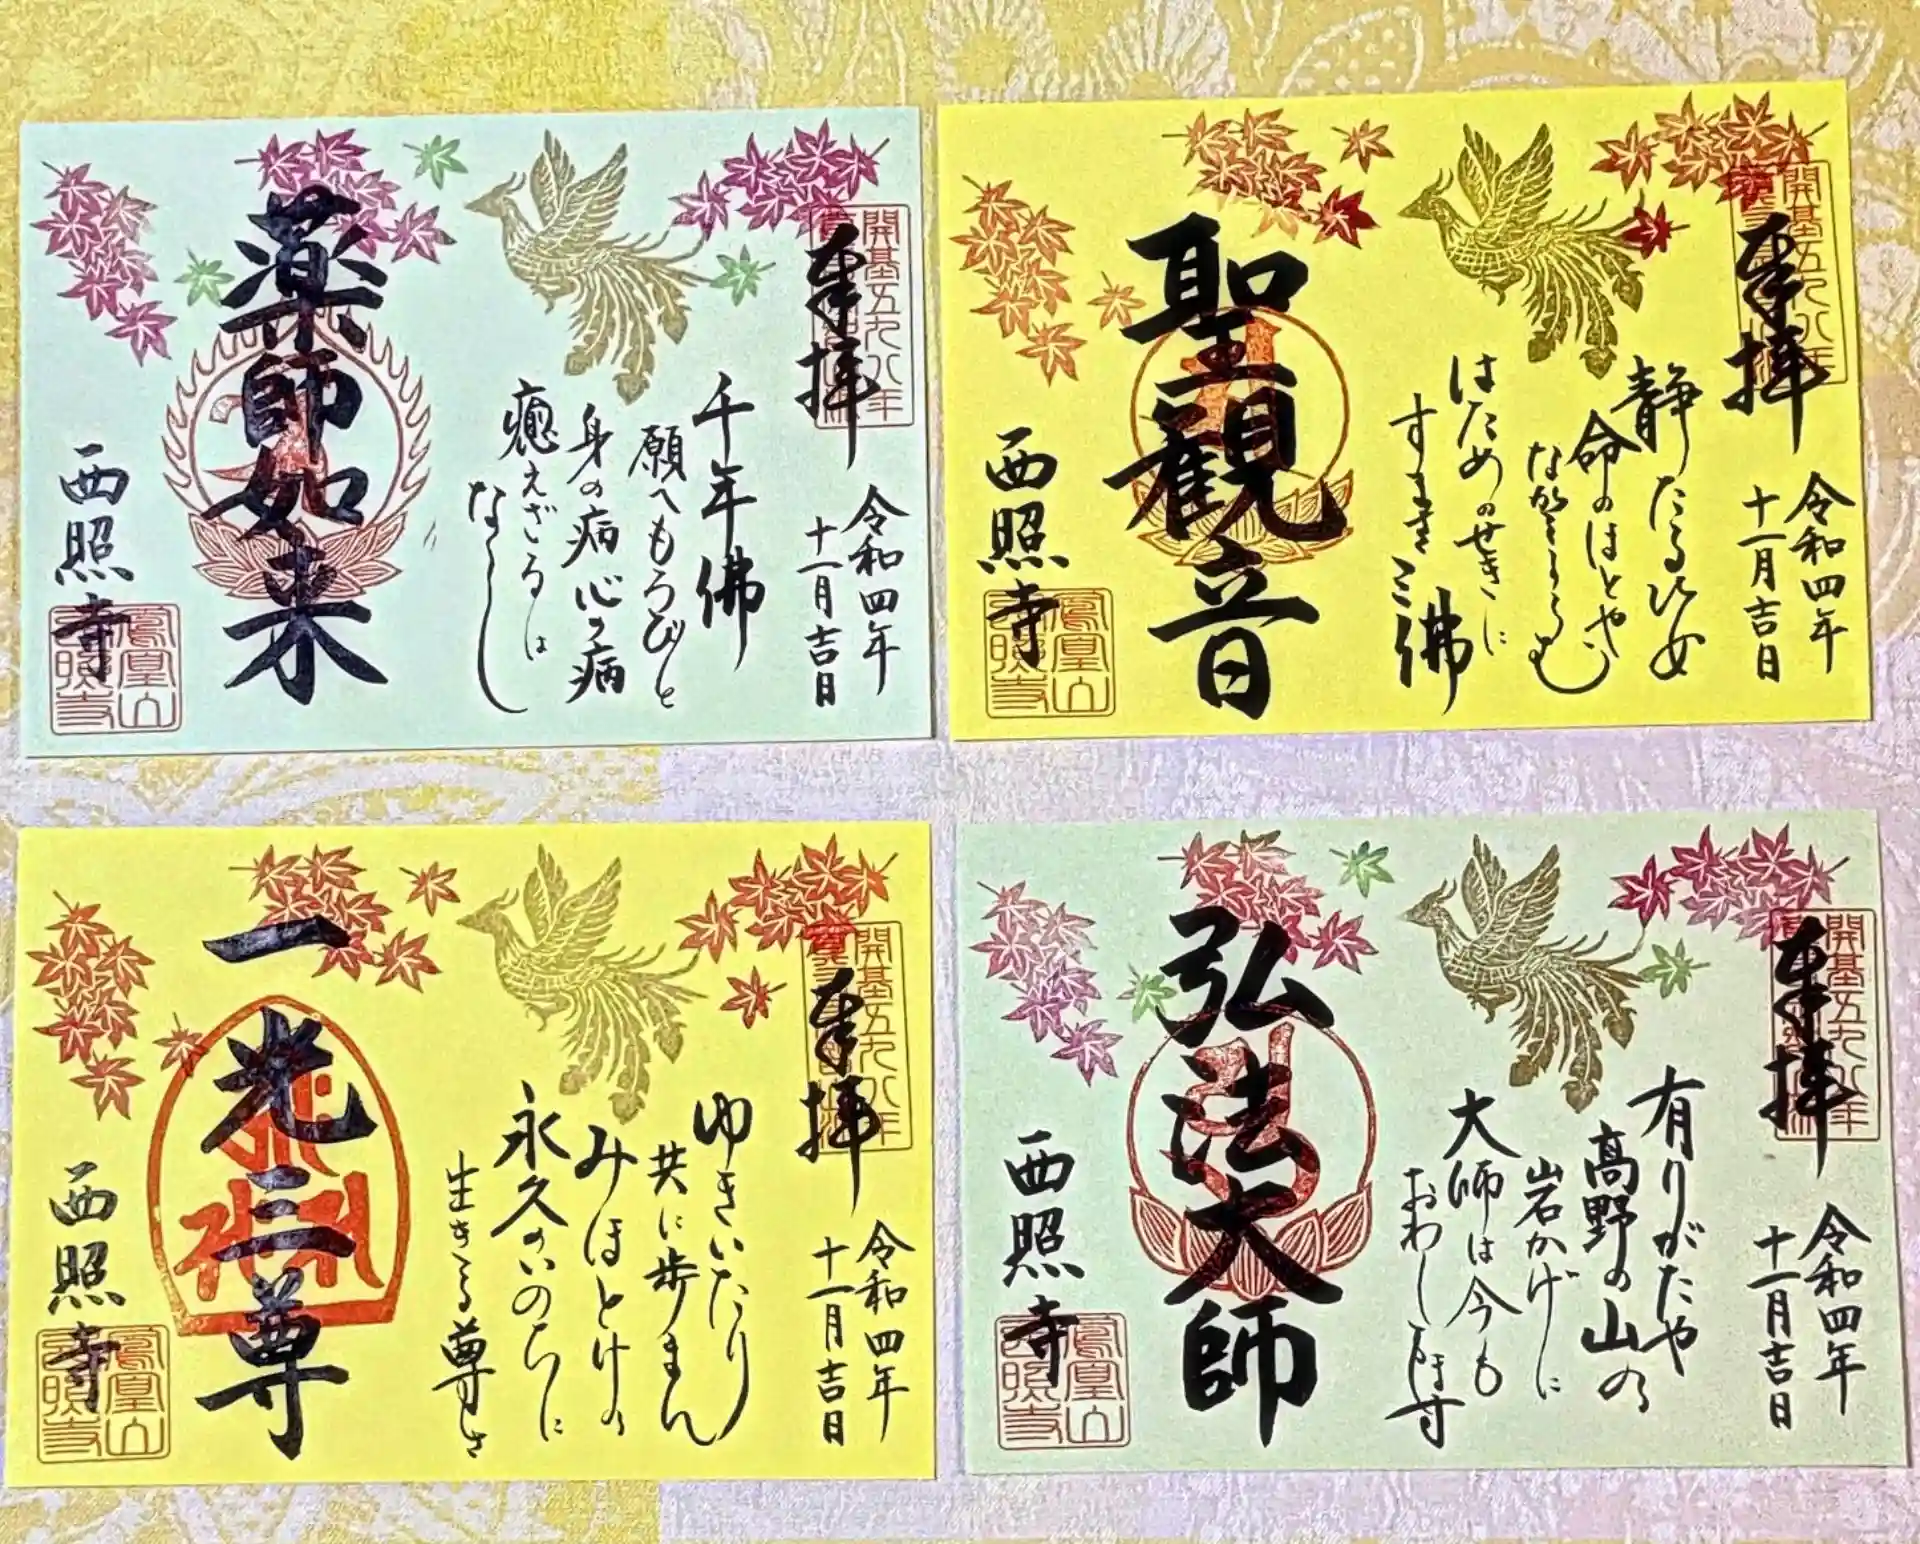 奉拝
開基五九八年
令和四年
十一月吉日
千年佛
願へもろびと
身の病心の病
癒えざるは
なし
薬師如来
西照寺
鳳凰山
西照寺
奉拝
開基五九八年
令和四年
十一月吉日
静たる
命のはとや
はためのせきに
佛
聖観音
西照寺
鳳凰山
西照寺
奉拝
開基五九八年
令和四年
十一月吉日
ゆきいたり
共に歩まん
みほとけの
永久のいのちに
生きる尊さ
一光三尊
西照寺
鳳凰山
西照寺
奉拝
開基五九八年
令和四年
十一月吉日
有りがたや
高野の山の
岩かげに
大師は今も
おわします
弘法大師
西照寺
鳳凰山
西照寺